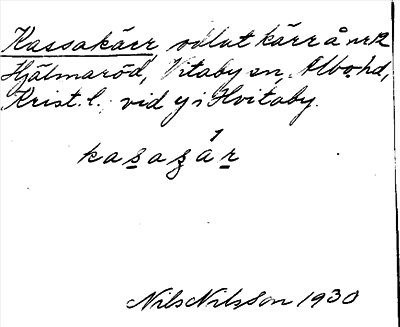 Kassakärr, odlat kärr å nr 12
Hjälmaröd, Vitaby sn, Albo hd,
Krist. l., vid y i Hvitaby.
kasaʒár
Nils Nilsson 1930